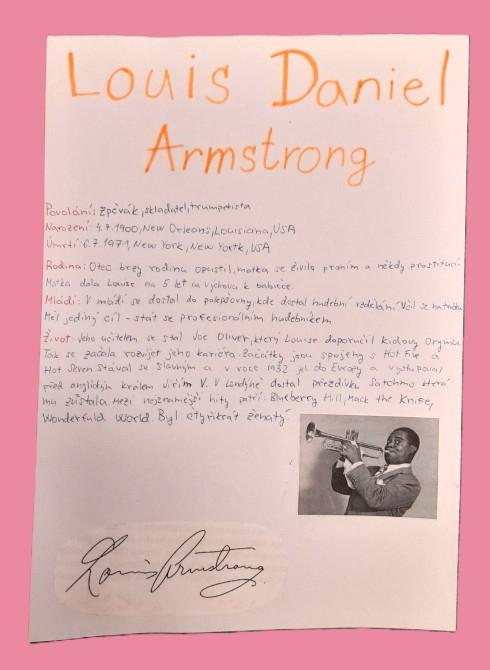 Louis Daniel
Armstrong
Povolání: Zpěvák, skladatel, trumpetista
Narození: 4.7.1900, New Orleans, Louisiana, USA
Úmrtí: 6.7.1971, New York, New Yortk, USA
Rodina: Otec brzy rodinu opustil, matka se živila praním a někdy prostitucí
Matka dala Louise na 5 let na výchovu k babičce.
Mládí: V mládí se dostal do polepšovny, kde dostal hudební vzdělání. Učil se na
Měl jediný cíl - stát se profesionálním hudebníkem.
Život: Jeho učitelem se stal Joe Oliver, který Louise doporučil Kidovy Orymu
Tak se začala rozvíjet jeho kariéra. Začátky jsou spojeny s Hot Five a
Hot Seven. Stával se slavným a v roce 1932 jel do Evropy a vystupoval
před anglickým králem Jiřím V. V Londýně dostal přezdívku Satchmo která
mu zůstala. Mezi nejznámější hity patří: Blueberry Hill, Mack the Knife,
Wonderfuld World. Byl čtyřikrát ženatý
Louis Armstrong